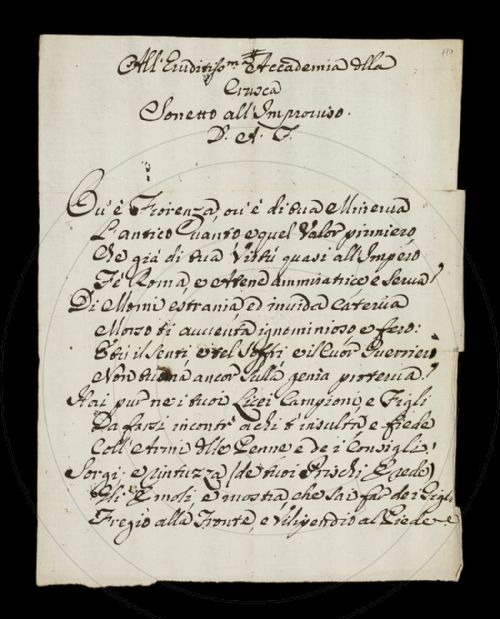 All'Eruditiss.ma Accademia della
Crusca
Sonetto all'Improviso.
D. A. F.
Ov'è Fiorenza, ov'è di tua Minerva
L'antico Vanto e quel Valor primiero
Che già di tua Virtù quasi all'Impero
Fè Roma, e Atene ammiratrice e Serva?
Di Momi estrania ed invida Caterva
Morso ti avventa ignominioso e fero:
E tu il senti, e tel soffri e il Cuor Guerriero
Non tuona ancor sulla genia proterva?
Hai pur ne i tuoi Licei Campioni, e Figli
Da farsi incontr' a chi t'insulta e fiede
Coll'Armi delle Penne e de i Consigli!
Sorgi: e rintuzza (de tuoi Prischi Erede)
Gli Emoli, e mostra, che sai far de i Gigli
Fregio alla Fronte, e Vilipendio al Piede